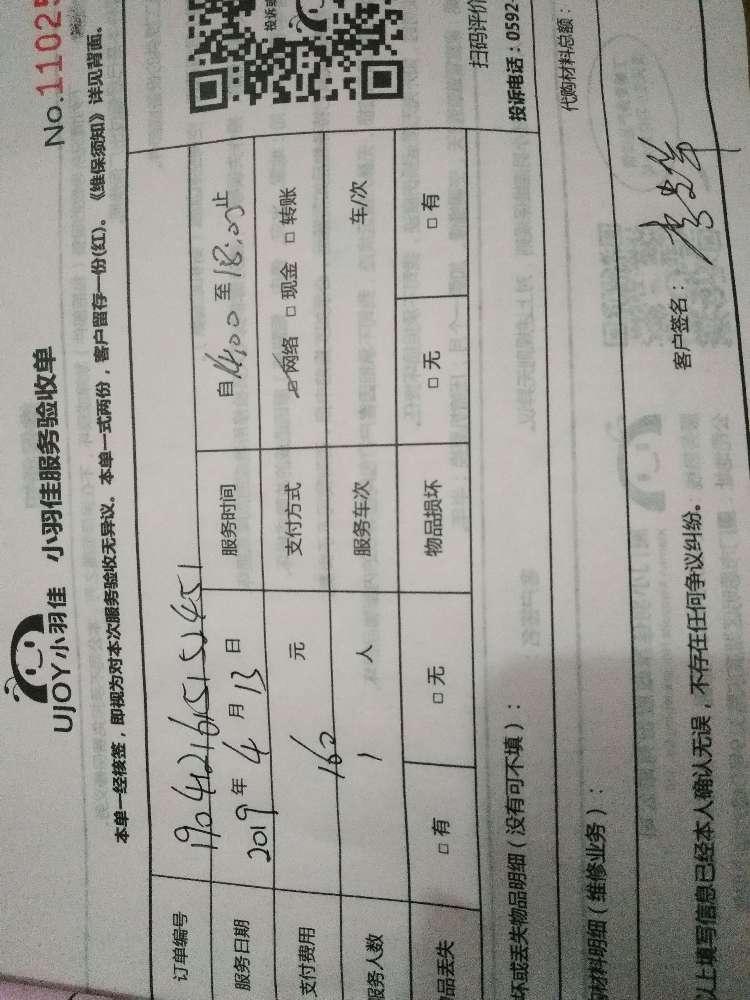 UJOY小羽佳 小羽佳服务验收单
No.11025
本单一经核签，即视为对本次服务验收无异议。本单一式两份，客户留存一份(红)。《维保须知》详见背面。
订单编号 190412161515245 1
服务日期 2019年 4 月 13 日 服务时间 自 14:00 至 18:00 止
支付费用 160 元 支付方式 ☑网络 □现金 □转账
服务人数 1 人 服务车次 车/次
物品丢失 □有 □无 物品损坏 □无 □有
投诉
扫码评价
投诉电话：0592-
坏或丢失物品明细（没有可不填）：
材料明细（维修业务）： 代购材料总额：
以上填写信息已经本人确认无误，不存在任何争议纠纷。 客户签名：